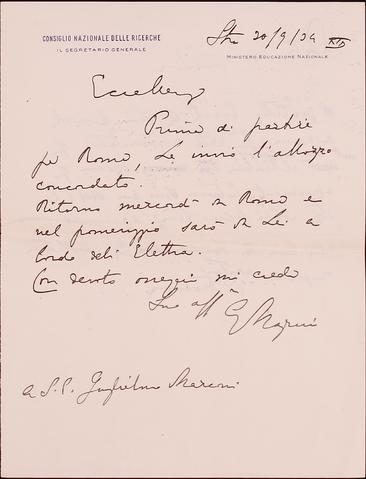 CONSIGLIO NAZIONALE DELLE RICERCHE
IL SEGRETARIO GENERALE
20/9/34 XII
MINISTERO EDUCAZIONE NAZIONALE
Eccellenza
Prima di partire
per Roma, Le invio l'abbozzo
concordato.
Ritorno mercordì da Roma e
nel pomeriggio sarò da Lei a
bordo dell'Elettra.
Con devoto ossequio mi creda
Suo aff
G Magrini
a S.E. Guglielmo Marconi